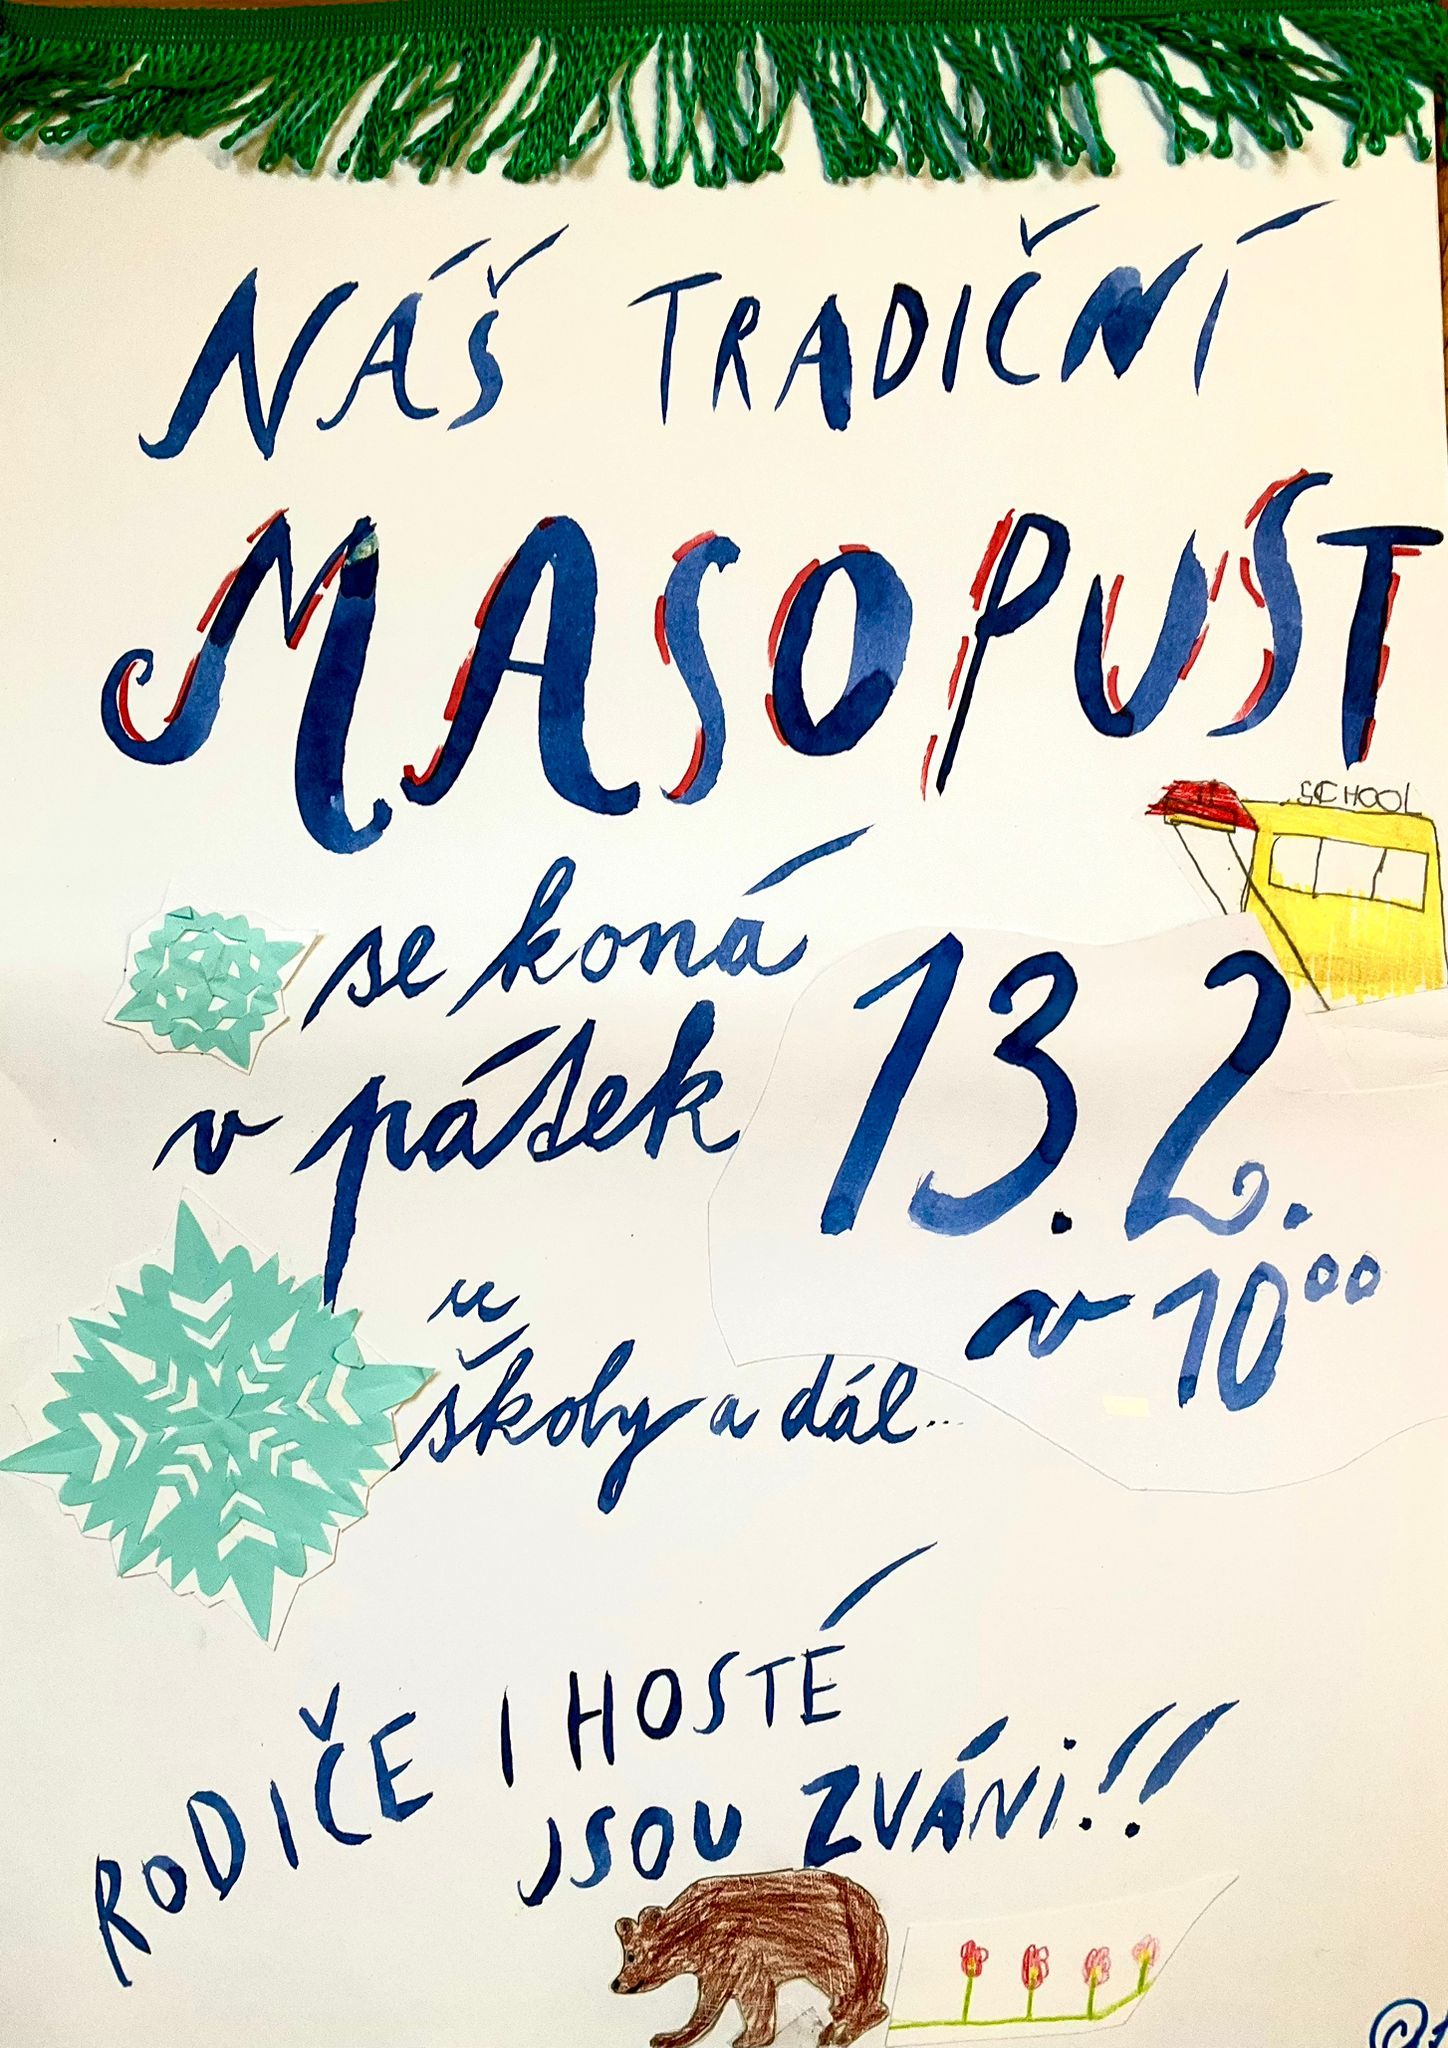 NÁŠ TRADIČNÍ
MASOPUST
SCHOOL
se koná
v pátek 13.2.
v 10⁰⁰
u
školy a dál...
RODIČE I HOSTÉ
JSOU ZVÁNI!!